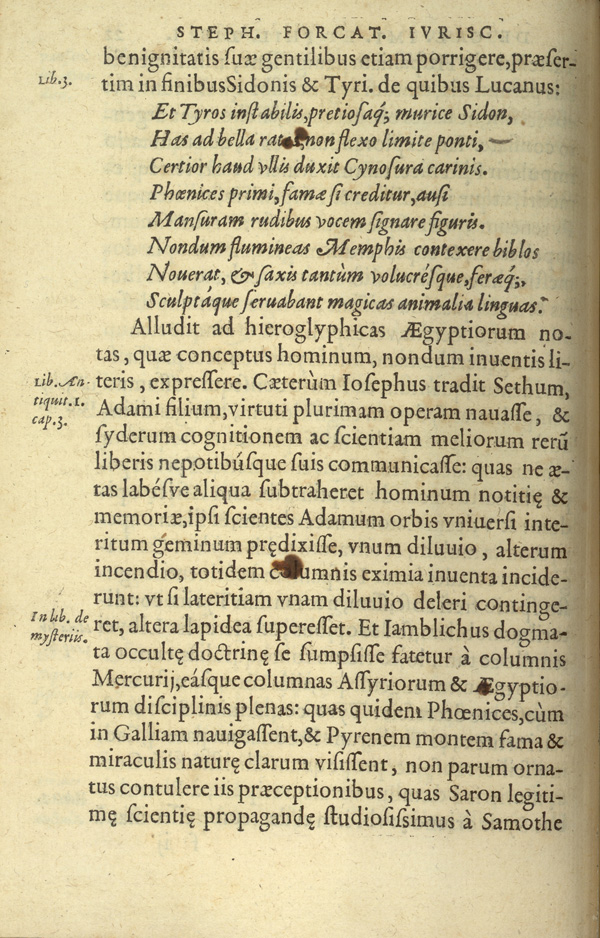 STEPH. FORCAT. IVRISC.
benignitatis suæ gentilibus etiam porrigere, præser-
Lib. 3.
tim in finibus Sidonis & Tyri. de quibus Lucanus:
Et Tyros instabilis, pretiosaq́; murice Sidon,
Has ad bella non flexo limite ponti,
Certior haud vllis duxit Cynosura carinis.
Phœnices primi, famæ si creditur, ausi
Mansuram rudibus vocem signare figuris.
Nondum flumineas Memphis contexere biblos
Nouerat, & saxis tantùm volucrésque, feræq́;,
Sculptáque seruabant magicas animalia linguas.
Alludit ad hieroglyphicas Ægyptiorum no-
tas, quæ conceptus hominum, nondum inuentis li-
Lib. An-
tiquit. 1.
cap. 3.
teris, expressere. Cæterùm Iosephus tradit Sethum,
Adami filium, virtuti plurimam operam nauasse, &
syderum cognitionem ac scientiam meliorum rerũ
liberis nepotibúsque suis communicasse: quas ne æ-
tas labésve aliqua subtraheret hominum notitię &
memoriæ, ipsi scientes Adamum orbis vniuersi inte-
ritum geminum prędixisse, vnum diluuio, alterum
incendio, totidem columnis eximia inuenta incide-
runt: vt si lateritiam vnam diluuio deleri continge-
In lib. de
mysteriis.
ret, altera lapidea superesset. Et Iamblichus dogma-
ta occultę doctrinę se sumpsisse fatetur à columnis
Mercurij, eásque columnas Assyriorum & Ægyptio-
rum disciplinis plenas: quas quidem Phœnices, cùm
in Galliam nauigassent, & Pyrenem montem fama &
miraculis naturę clarum visissent, non parum orna-
tus contulere iis præceptionibus, quas Saron legiti-
mę scientię propagandę studiosissimus à Samothe